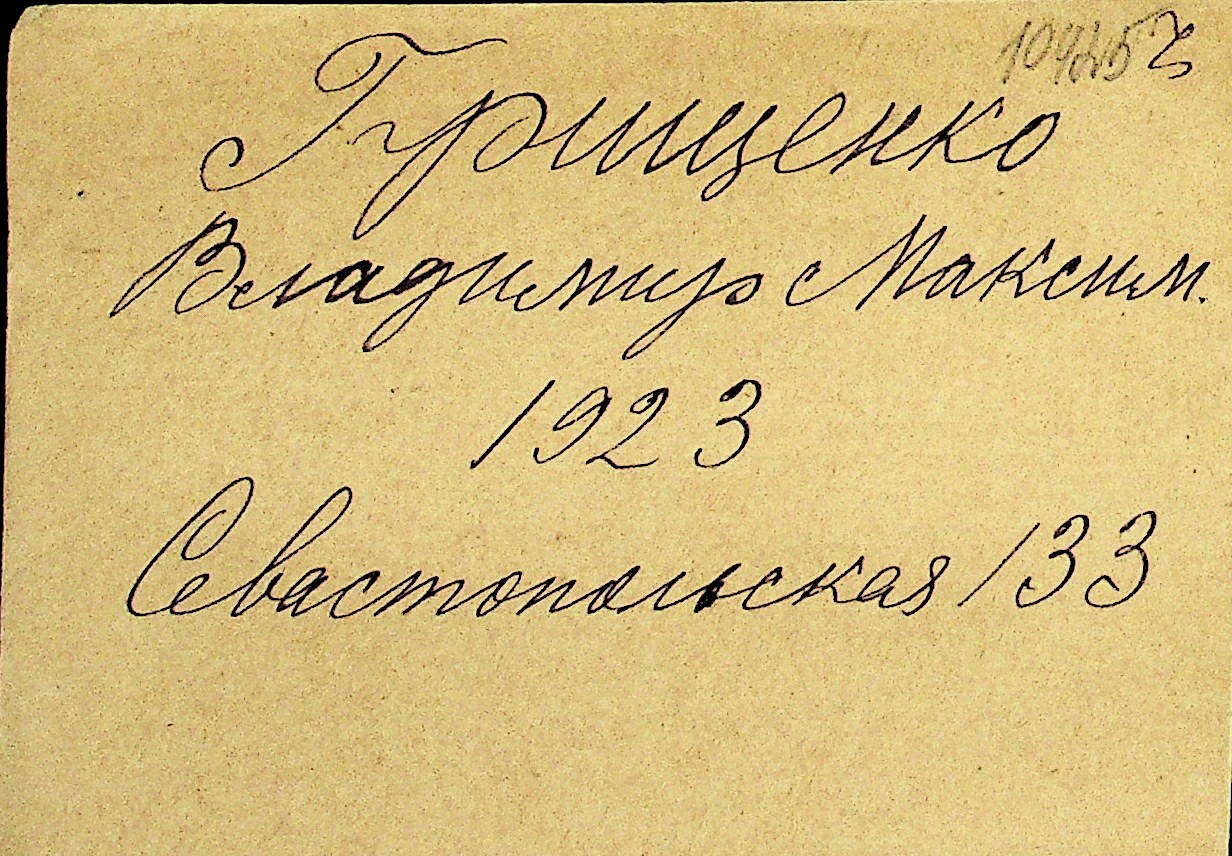 Грищенко
Владимир Максим.
1923
Севастопольская 133